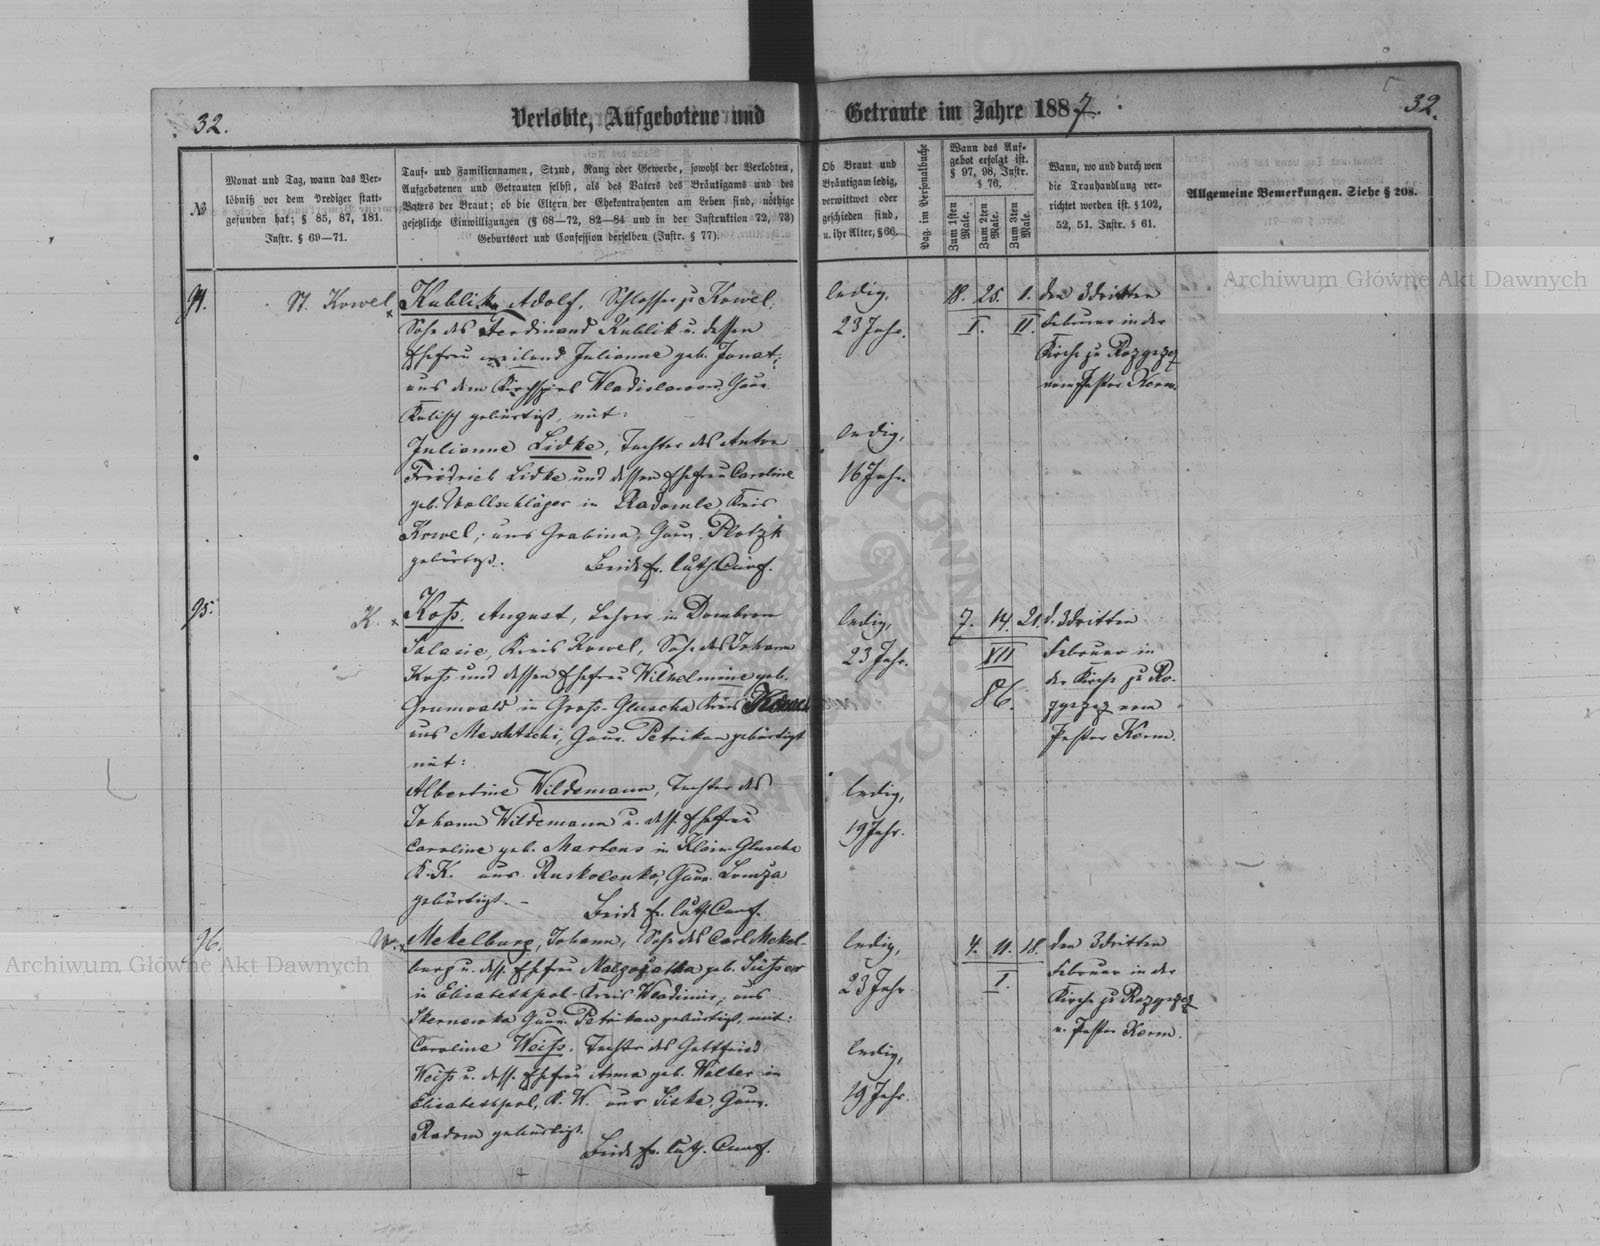 32.
Verlobte, Aufgebotene und
Getraute im Jahre 1887.
32.
№
Monat und Tag, wann das Ver-
löbniß vor dem Prediger statt-
gefunden hat; § 85, 87, 181.
Instr. § 69—71.
Tauf- und Familiennamen, Stand, Rang oder Gewerbe, sowohl der Verlobten,
Aufgebotenen und Getrauten selbst, als des Vaters des Bräutigams und des
Vaters der Braut; ob die Eltern der Ehekontrahenten am Leben sind, nöthige
gesetzliche Einwilligungen (§ 68—72, 82—84 und in der Instruktion 72, 73)
Geburtsort und Confession derselben (Instr. § 77).
Ob Braut und
Bräutigam ledig,
verwittwet oder
geschieden sind,
u. ihr Alter, § 66.
Pag. im Personalbuche
Wann das Auf-
gebot erfolgt ist.
§ 97, 98, Instr.
§ 76.
Zum 1sten Male.
Zum 2ten Male.
Zum 3ten Male.
Wann, wo und durch wen
die Trauhandlung ver-
richtet worden ist. § 102,
52, 51. Instr. § 61.
Allgemeine Bemerkungen. Siehe § 208.
94.
St. Kowel
Kublik, Adolf, Schlosser zu Kowel,
Sohn des Ferdinand Kublik u. dessen
Ehefrau weiland Julianne geb. Jonat;
aus dem Kirchspiel Wladislawow, Gouv.
Kalisch gebürtigt, mit:
Julianne Lidke, Tochter des
Friedrich Lidke und dessen Ehefrau Caroline
geb. Wollschläger in Radomle, Kreis
Kowel, aus Grabina, Gouv. Plotzk
gebürtigt.
Beide ev. luth. Conf.
ledig,
23 Jahr.
ledig,
16 Jahr.
18. 25. 1.
I. II.
den 3 dritten
Februar in der
Kirche zu Rozyszcz
vom Pastor Kerm.
95.
K.
Koss, August, Lehrer in Dombrow
Kreis Kowel, Sohn des Johann
Koss und dessen Ehefrau Wilhelmine geb.
Grunwald in Gross-Gluscha Kreis Kowel
aus Gouv. Petrikau gebürtigt
mit:
Albertine Wildemann, Tochter des
Johann Wildemann u. dess. Ehefrau
Caroline geb. Martens in Klein-Gluscha
K. K. aus Ruskolenka, Gouv. Lomza
gebürtigt.
Beide ev. luth. Conf.
ledig,
23 Jahr.
ledig,
19 Jahr.
7. 14. 21.
XII
86.
d. 3 dritten
Februar in
der Kirche zu Ro-
zyszcz vom
Pastor Kerm.
96.
W.
Mekelburg, Johann, Sohn des Carl Mekel-
burg u. dess. Ehefrau geb. Süsser
in Elisabethpol Kreis Wladimir, aus
Gouv. Petrikau gebürtigt, mit:
Caroline Weiss, Tochter des Gottfried
Weiss u. dess. Ehefrau Anna geb. Walter in
Elisabethpol, K. W. aus Gouv.
Radom gebürtigt.
Beide ev. luth. Conf.
ledig,
23 Jahr
ledig,
19 Jahr.
4. 11. 18.
I.
den 3 dritten
Februar in der
Kirche zu Rozyszcz
v. Pastor Kerm.
Archiwum Główne Akt Dawnych
Archiwum Główne Akt Dawnych